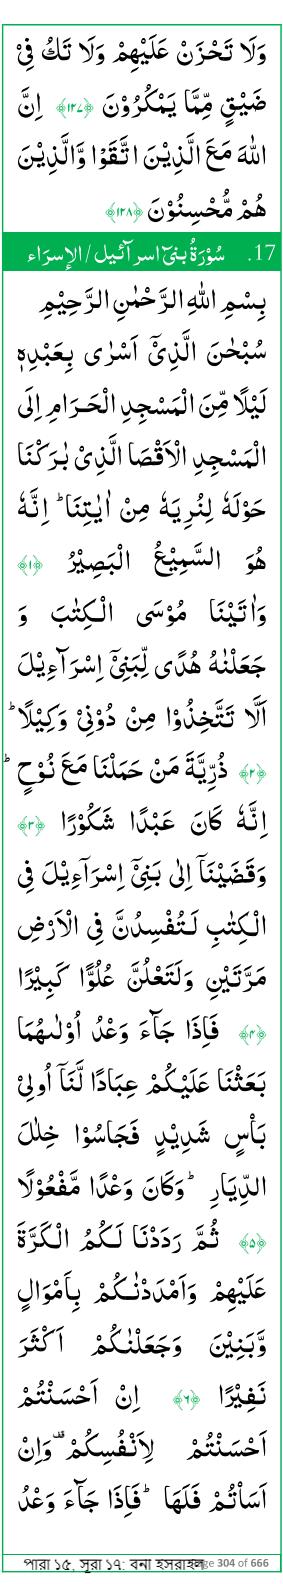 وَلَا تَحْزَنْ عَلَيْهِمْ وَلَا تَكُ فِيْ
ضَيْقٍ مِّمَّا يَمْكُرُوْنَ ﴿۱۲۷﴾ اِنَّ
اللهَ مَعَ الَّذِيْنَ اتَّقَوْا وَّالَّذِيْنَ
هُمْ مُّحْسِنُوْنَ ﴿۱۲۸﴾
17. سُوْرَةُ بنيٓ اسرآئيل / الإسراء
بِسْمِ اللهِ الرَّحْمٰنِ الرَّحِيْمِ
سُبْحٰنَ الَّذِيْٓ اَسْرٰى بِعَبْدِهٖ
لَيْلًا مِّنَ الْمَسْجِدِ الْحَرَامِ اِلَى
الْمَسْجِدِ الْاَقْصَا الَّذِيْ بٰرَكْنَا
حَوْلَهٗ لِنُرِيَهٗ مِنْ اٰيٰتِنَا ؕ اِنَّهٗ
هُوَ السَّمِيْعُ الْبَصِيْرُ ﴿۱﴾
وَاٰتَيْنَا مُوْسَى الْكِتٰبَ وَ
جَعَلْنٰهُ هُدًى لِّبَنِيْٓ اِسْرَآءِيْلَ
اَلَّا تَتَّخِذُوْا مِنْ دُوْنِيْ وَكِيْلًا ؕ
﴿۲﴾ ذُرِّيَّةَ مَنْ حَمَلْنَا مَعَ نُوْحٍ ؕ
اِنَّهٗ كَانَ عَبْدًا شَكُوْرًا ﴿۳﴾
وَقَضَيْنَآ اِلٰى بَنِيْٓ اِسْرَآءِيْلَ فِى
الْكِتٰبِ لَتُفْسِدُنَّ فِى الْاَرْضِ
مَرَّتَيْنِ وَلَتَعْلُنَّ عُلُوًّا كَبِيْرًا
﴿۴﴾ فَاِذَا جَآءَ وَعْدُ اُوْلٰىهُمَا
بَعَثْنَا عَلَيْكُمْ عِبَادًا لَّنَآ اُولِيْ
بَاْسٍ شَدِيْدٍ فَجَاسُوْا خِلٰلَ
الدِّيَارِ ؕ وَكَانَ وَعْدًا مَّفْعُوْلًا
﴿۵﴾ ثُمَّ رَدَدْنَا لَكُمُ الْكَرَّةَ
عَلَيْهِمْ وَاَمْدَدْنٰكُمْ بِاَمْوَالٍ
وَّبَنِيْنَ وَجَعَلْنٰكُمْ اَكْثَرَ
نَفِيْرًا ﴿۶﴾ اِنْ اَحْسَنْتُمْ
اَحْسَنْتُمْ لِاَنْفُسِكُمْ ۫ وَاِنْ
اَسَاْتُمْ فَلَهَا ؕ فَاِذَا جَآءَ وَعْدُ
পারা ১৫, সূরা ১৭: বনী ইসরাইল 304 of 666